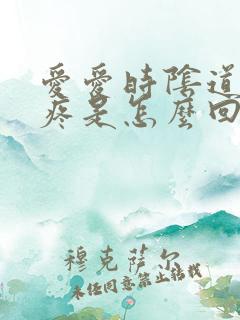 愛愛時陰道
疼是怎麼回
穆克薩尔
未经同意禁止转载